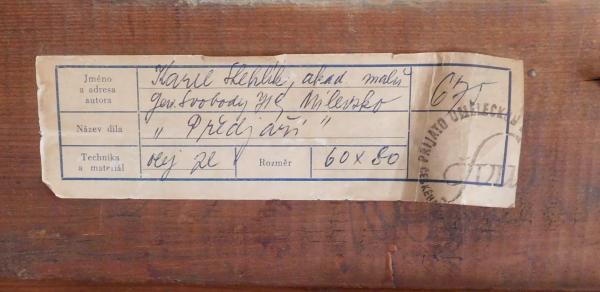 Jméno
a adresa
autora
Karel Stehlík, akad malíř
Gen. Svobody Milevsko
Název díla
„ Předjaří "
Technika
a materiál
olej pl
Rozměr
60 x 80
PŘIJATO UMĚLECKOU